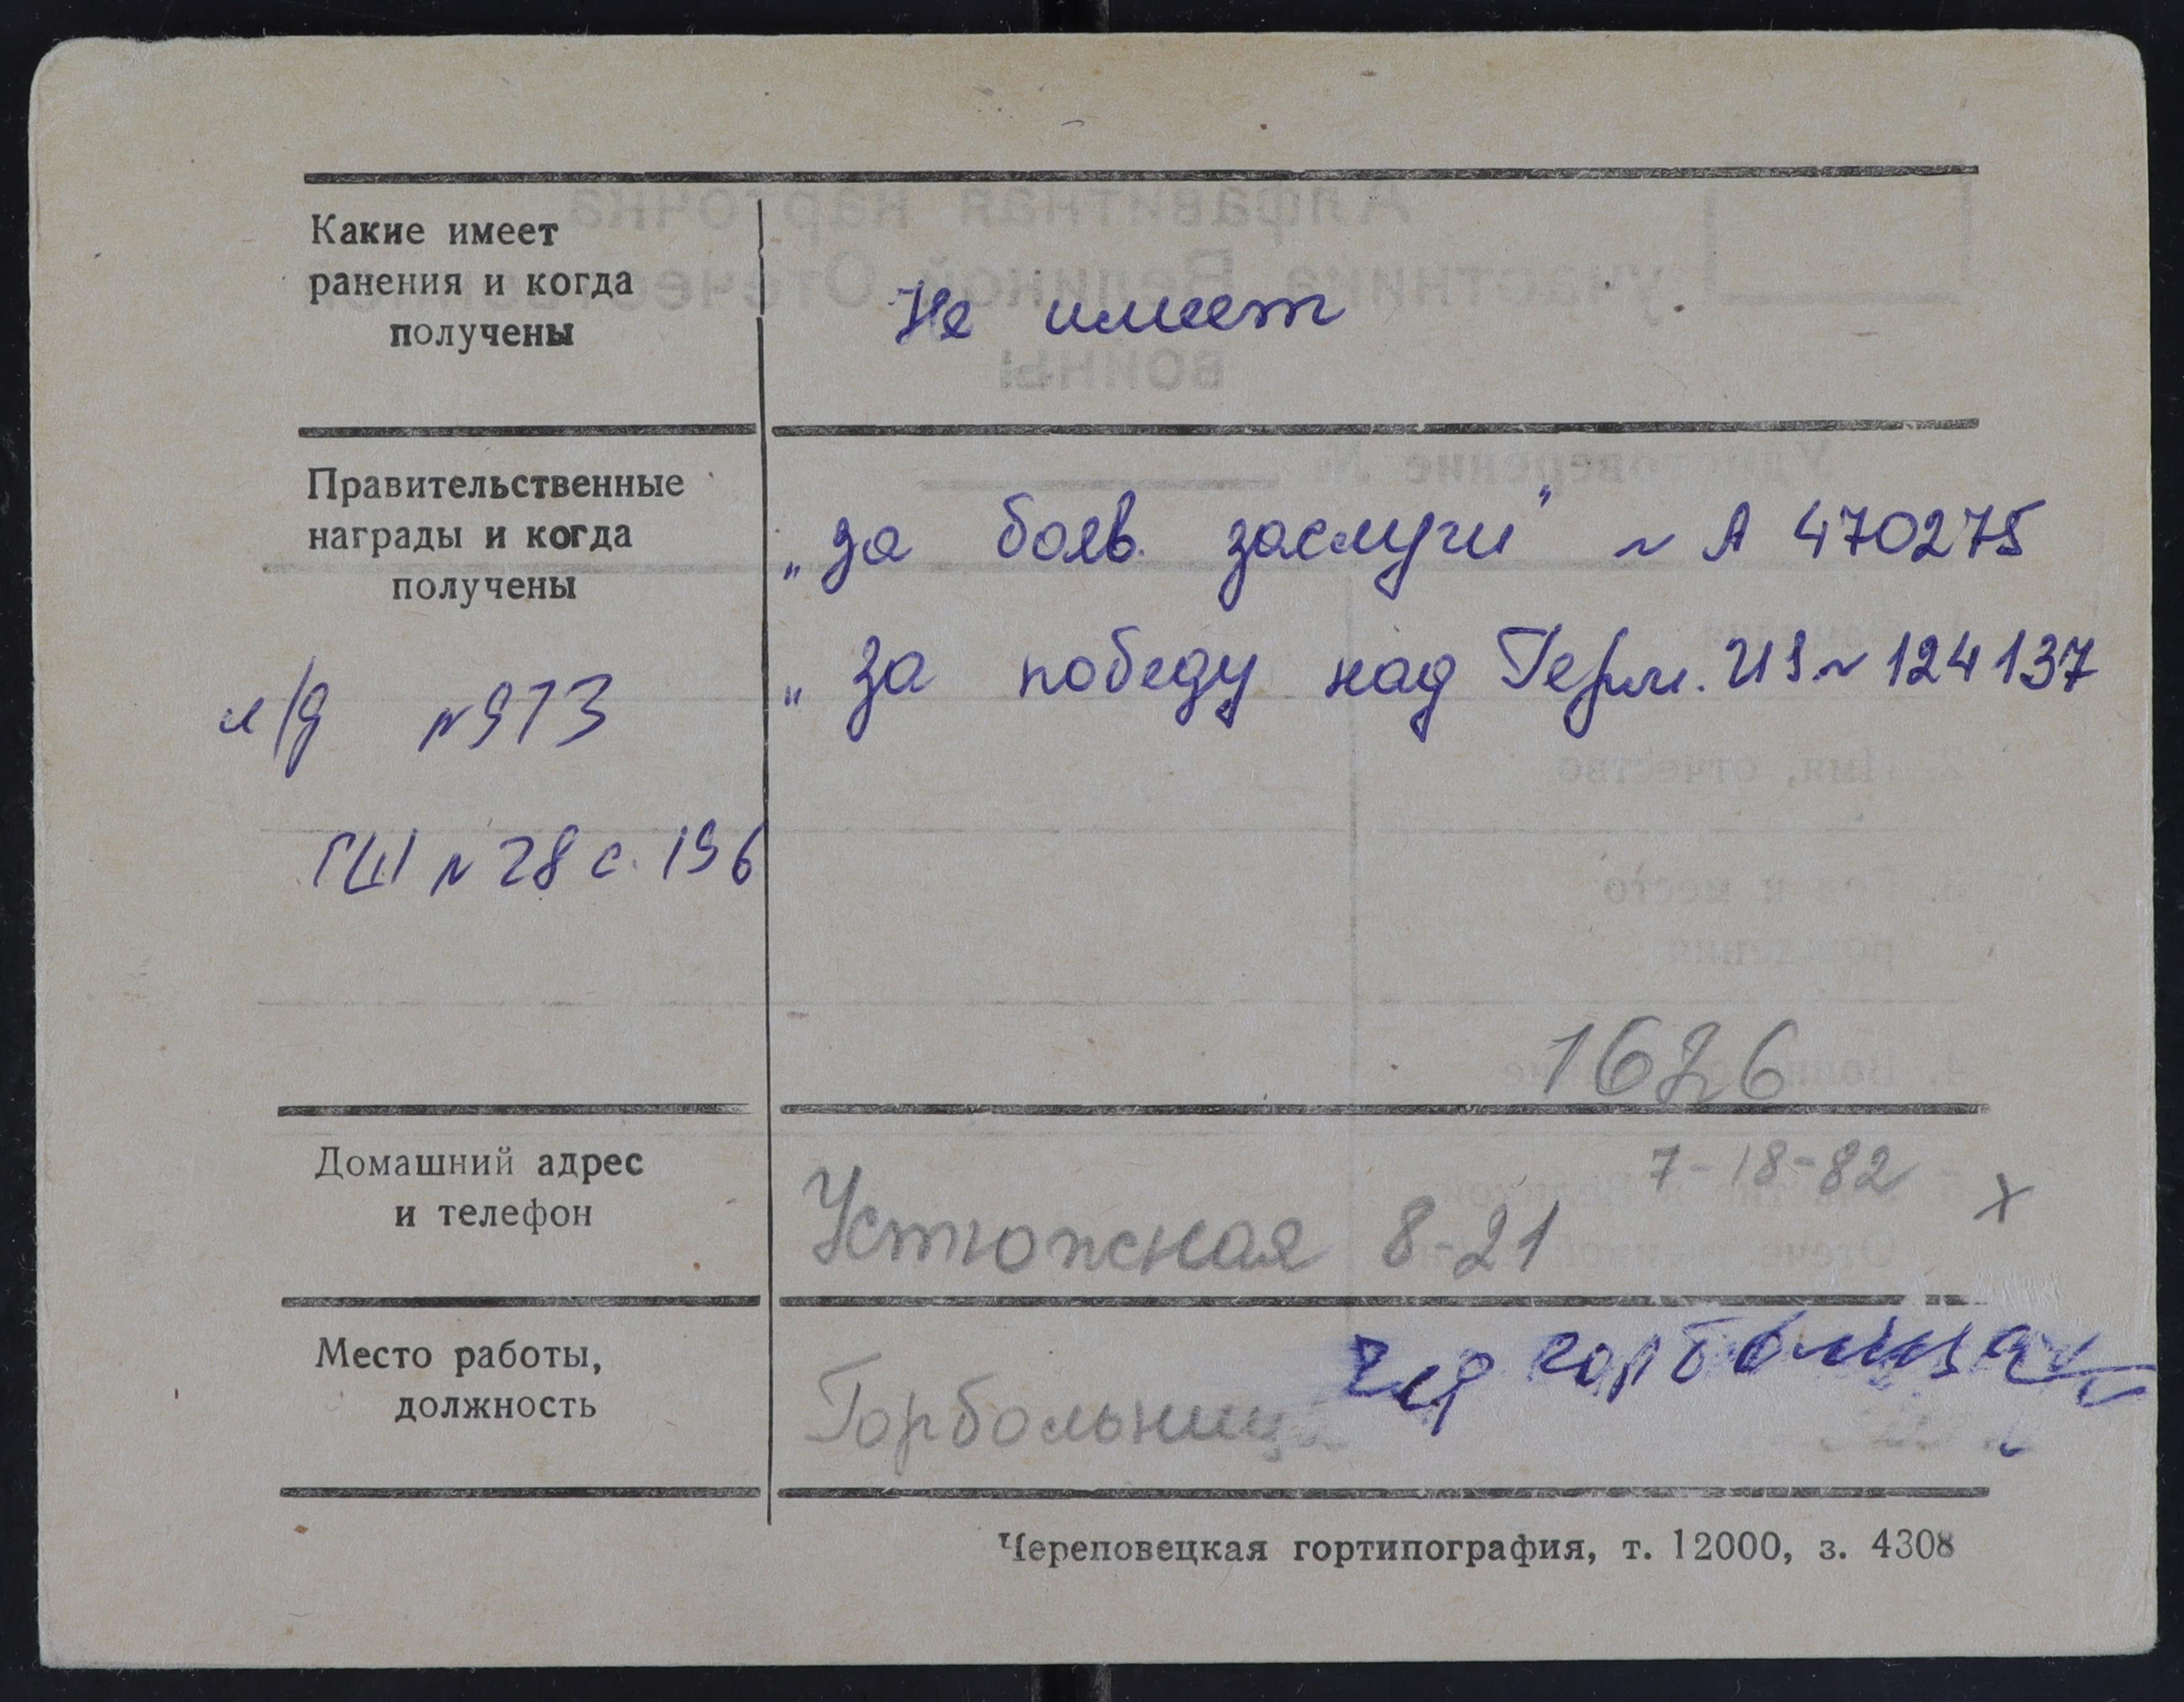 Какие имеет
ранения и когда
получены
Не имеет
Правительственные
награды и когда
получены
„за боев. заслуги" ~ А 470275
„ За победу над Герм. ИЗ ~ 124137
л/д №973
ГШ №28 с. 196
1626
Домашний адрес
и телефон
7-18-82 х
Устюженская 8-21
Место работы,
должность
Горбольница
горбольница
Череповецкая гортипография, т. 12000, з. 4308